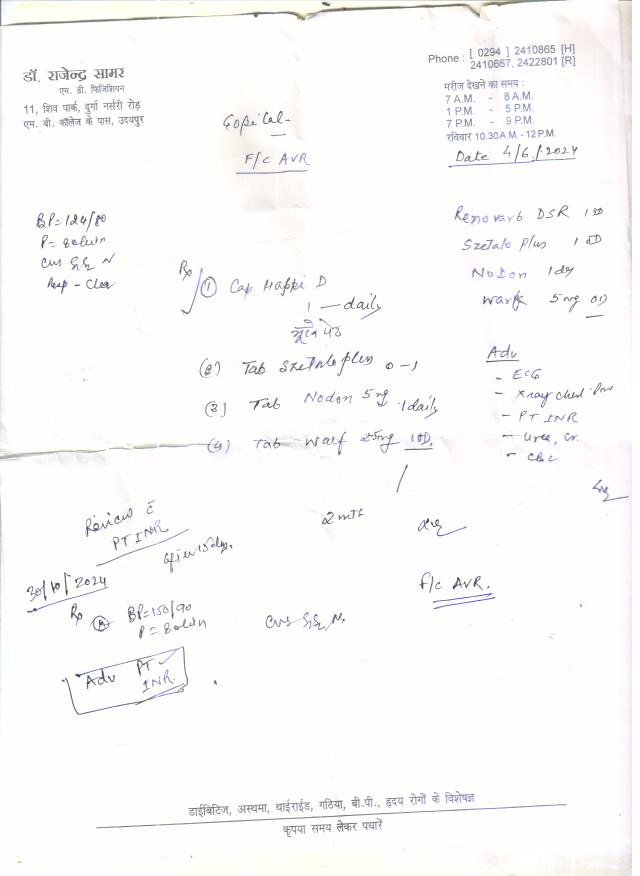 डॉ. राजेन्द्र सामर
एम. डी. फिजिशियन
11, शिव पार्क, दुर्गा नर्सरी रोड़
एम. बी. कॉलेज के पास, उदयपुर
Phone : [ 0294 ] 2410865 [H]
2410667, 2422801 [R]
मरीज देखने का समय :
7 A.M. - 8 A.M.
1 P.M. - 5 P.M.
7 P.M. - 9 P.M.
रविवार 10.30 A.M. - 12 P.M.
Date 4/6/2024
F/C AVR
BP=124/80
P=
CVS N
Resp - Clear
DSR 1 OD
Szetalo Plus 1 OD
NoDon 1 dy
Warf 5 mg OD
Rx
(1) Cap Happi D
1 — daily
भूखे पेट
(2) Tab Szetalo plus 0-1
(3) Tab Nodon 5 mg 1 daily
(4) Tab Warf 5 mg 1 OD.
Adv
- ECG
- Xray Chest
- PT INR
- Urea, Cr.
- CBC
2 mth
Review c̄
PT INR
after 15 days
30/10/2024
Rx
BP=150/90
P=
CVS N
F/C AVR.
Adv PT
INR.
डाईबिटिज, अस्थमा, थाईराईड, गठिया, बी.पी., हृदय रोगों के विशेषज्ञ
कृपया समय लेकर पधारें